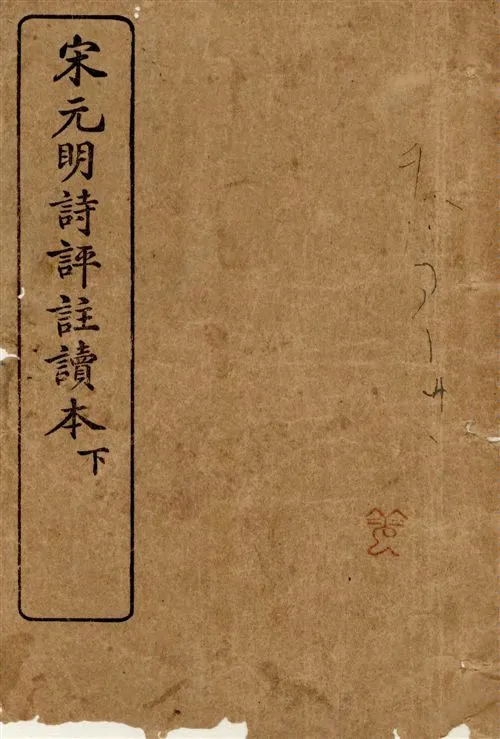 宋元明詩評註讀本
下